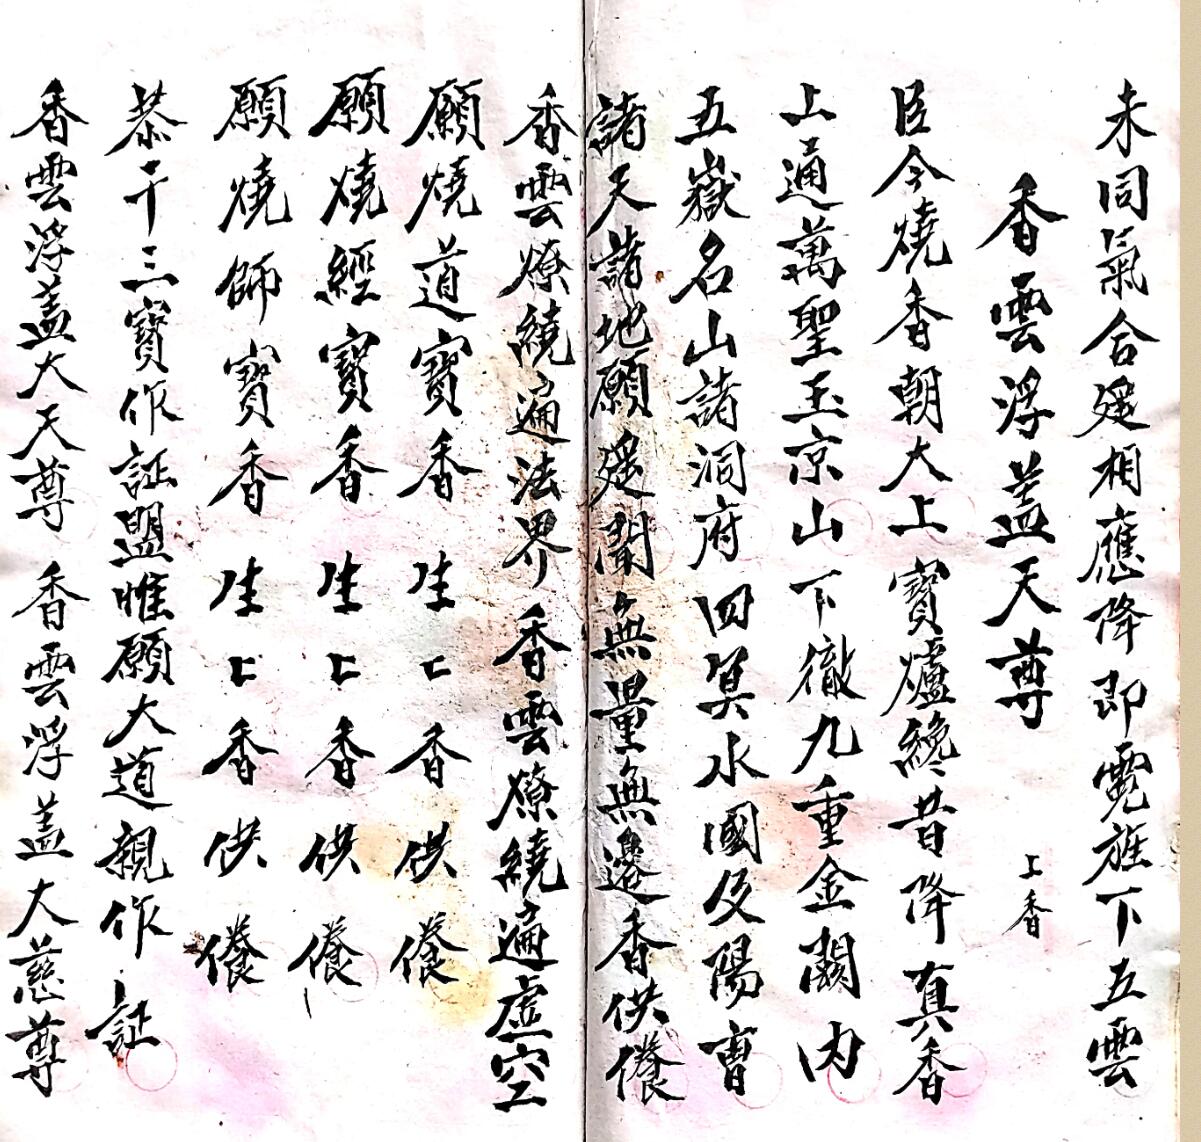 未同氣合遥相應降即霓旌下五雲
香雲浮盖天尊 上香
臣今燒香朝大上寶爐纔昔降真香
上通萬聖玉京山下徹九重金闕内
五嶽名山諸洞府四冥水國及陽曹
諸天諸地願遥聞無量無邊香供養
香雲燎繞遍法界香雲燎繞遍虚空
願燒道寶香生〻香供養
願燒經寶香生〻香供養
願燒師寶香生〻香供養
恭干三寶作証盟惟願大道親作証
香雲浮盖大天尊香雲浮盖大慈尊